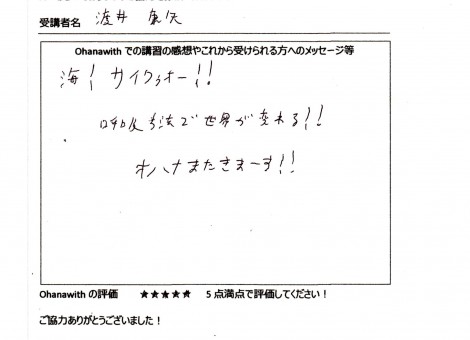 受講者名 渡井
Ohanawith での講習の感想やこれから受けられる方へのメッセージ等
海！サイクォー！！
呼吸方法で世界が変わる！！
オハナまたきまーす！！
Ohanawith の評価 ★★★★★ 5 点満点で評価してください！
ご協力ありがとうございました！